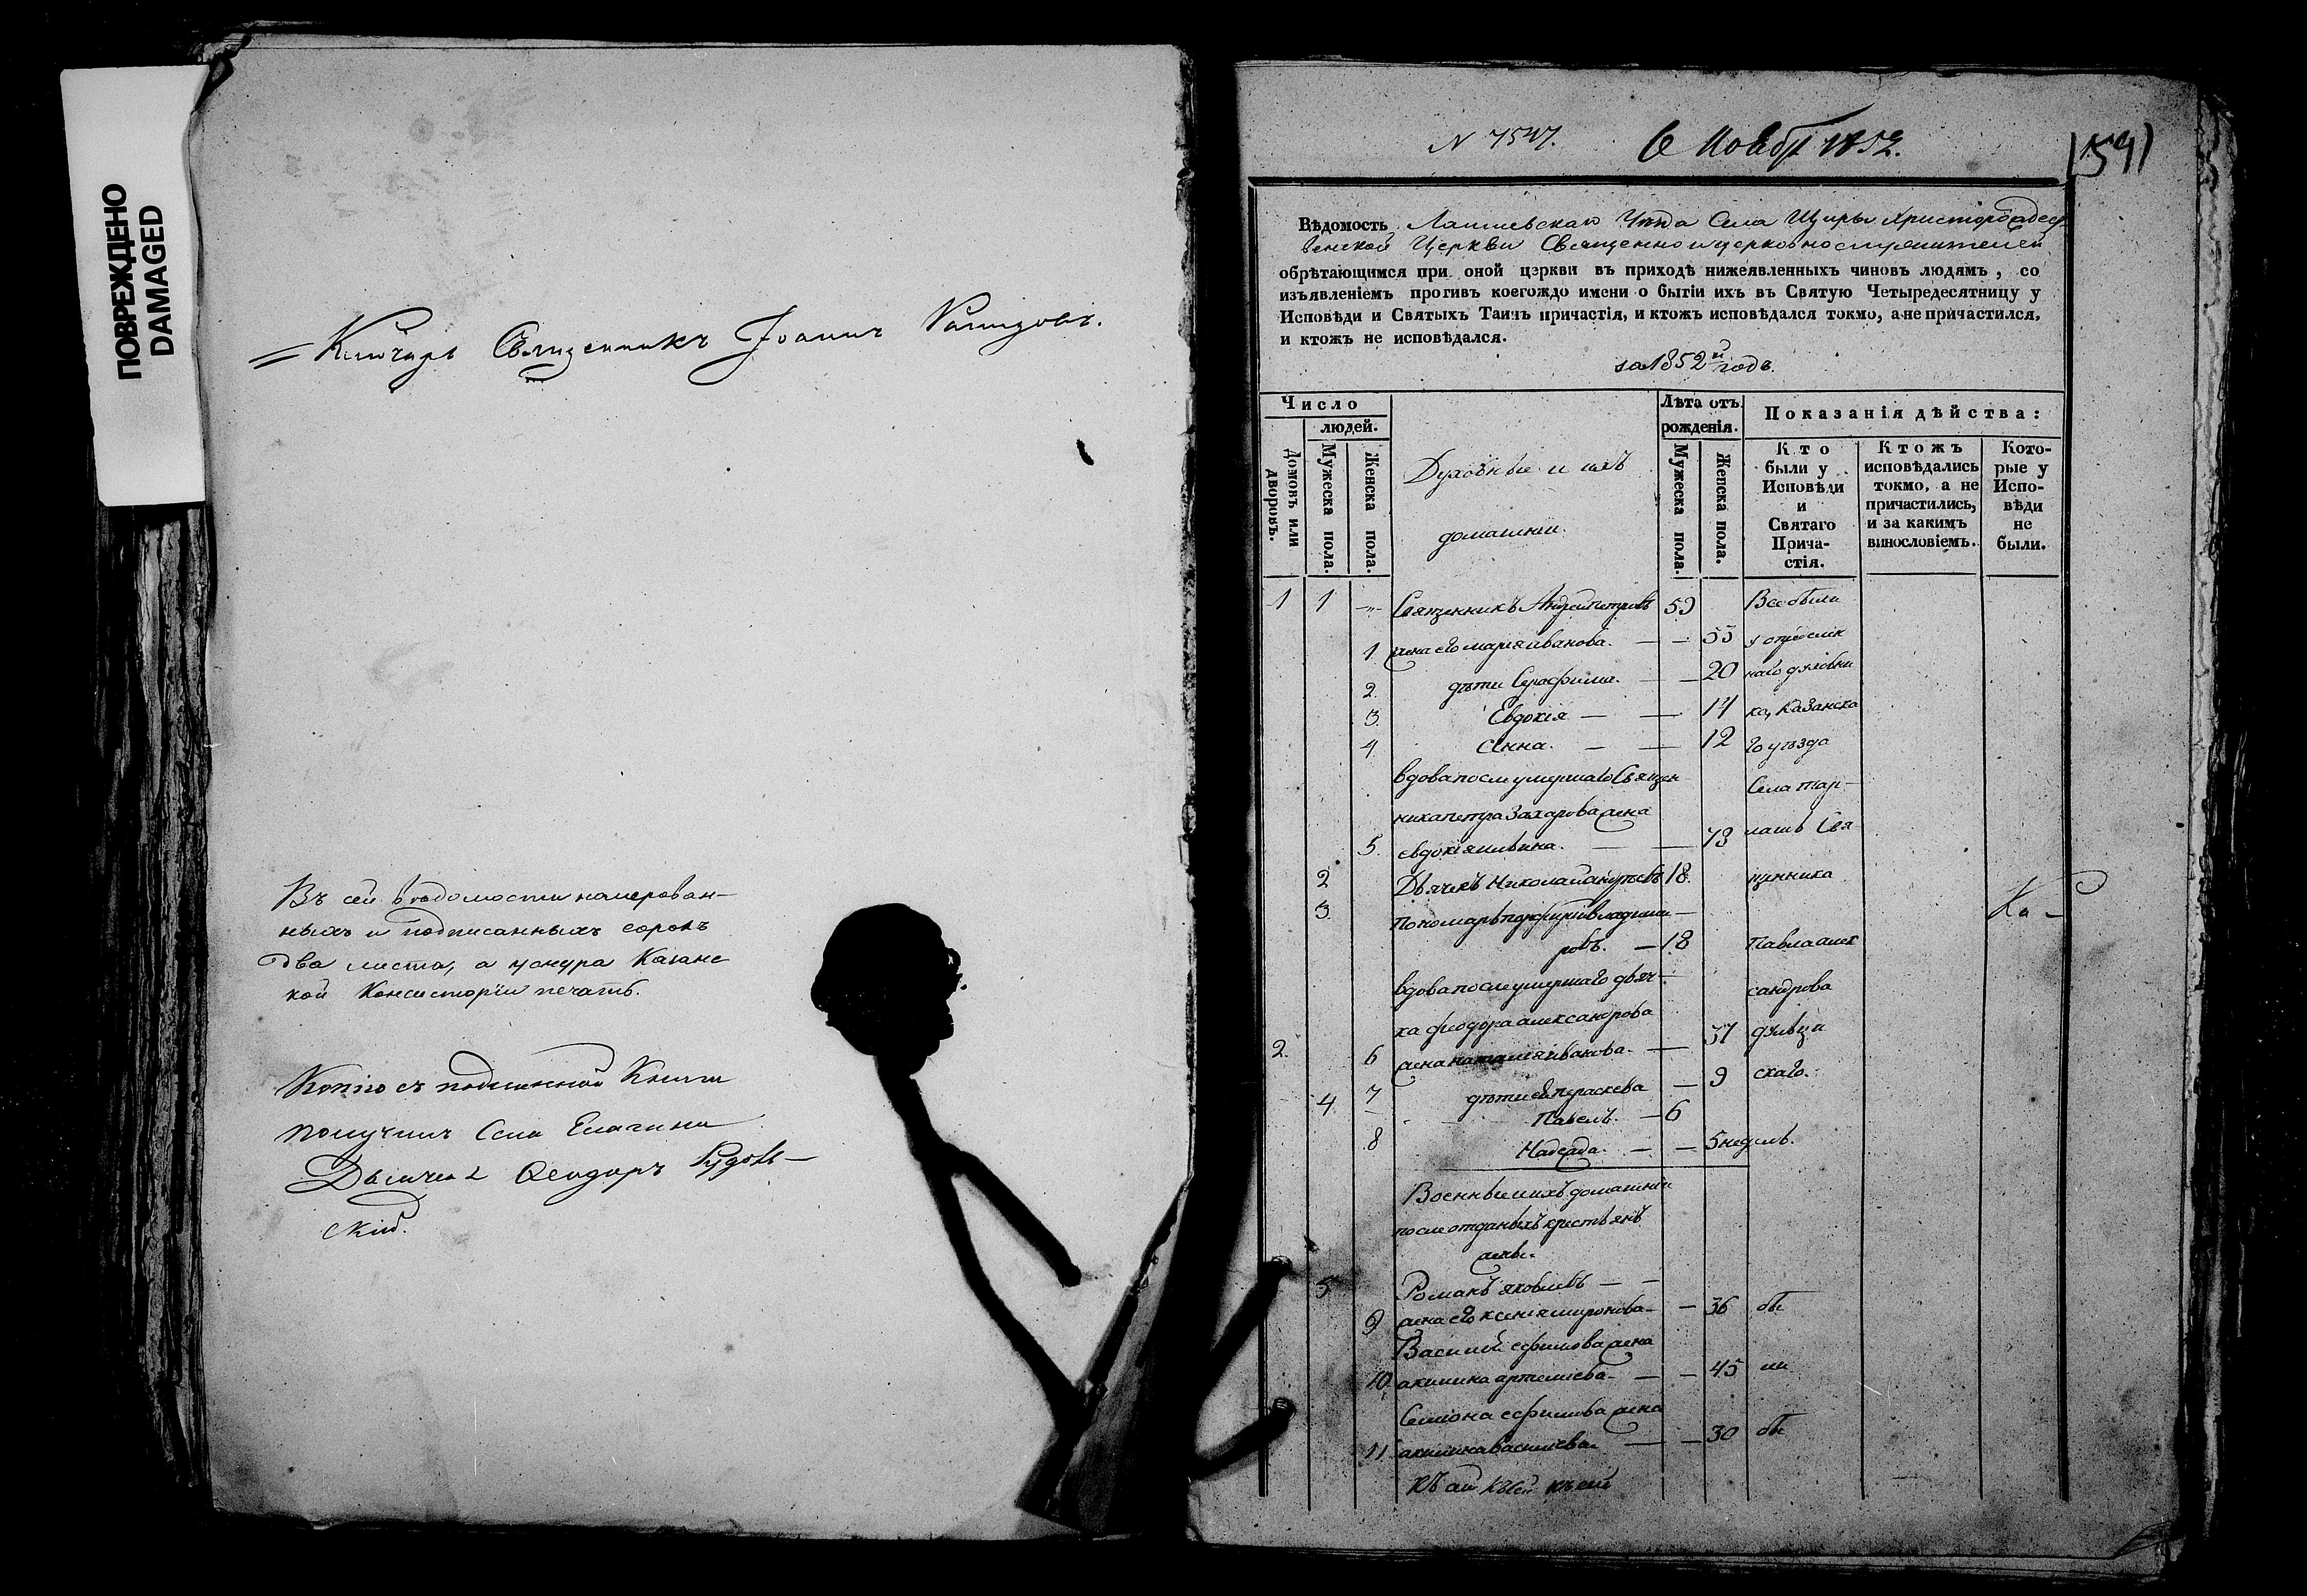 ПОВРЕЖДЕНО
DAMAGED
Ключарь Священникъ Іоаннъ
Въ сей вѣдомости намерован-
ныхъ и подписанныхъ сорокъ
два листа, а у снура Казанс
кой Консисторіи печать.
Копію съ подлинной Книги
получилъ Села Елагина
Дьячекъ Феодоръ Рудольв-
скій.
6 Ноябр 1852.
1591
Вѣдомость Лаишевскаго Уѣзда Села Шуры Христорождес
венской Церкви Священно и церковнослужителей
обрѣтающимся при оной церкви въ приходѣ нижеявленныхъ чиновъ людямъ, со
изъявленіемъ противъ коегождо имени о бытіи ихъ въ Святую Четыредесятницу у
Исповѣди и Святыхъ Таинъ причастія, и ктожъ исповѣдался токмо, а не причастился,
и ктожъ не исповѣдался.
за 1852й годъ.
Число
людей.
Домовъ или дворовъ.
Мужеска пола.
Женска пола.
Духовные и ихъ
домашніи.
Лѣта отъ
рожденія.
Мужеска пола.
Женска пола.
Показанія дѣйства:
Кто
были у
Исповѣди
и
Святаго
Прича-
стія.
Ктожъ
исповѣдались
токмо, а не
причастились,
и за какимъ
винословіемъ.
Кото-
рые у
Испо-
вѣди
не
были.
1 1 -"- Священникъ Андрей Петровъ 59 Все были
1 жена его Марія Иванова. — — 55
2 дѣти Серафима. — — 20 наго духовни
3 Евдокія — — 14 ка, Казанска
4 Анна. — — 12 го уѣзда
вдова после умершаго Священ Села Тар-
ника Петра Захарова жена
5. Евдокія — — 73 лашъ Свя
2 Дьячекъ Николай 18. щенника
3 Пономарь Порфирій Владими- Ка-
ровъ. — 18 Павла Алек
вдова после умершаго дьяч- сандрова
ка Феодора Александрова
2. 6 жена Наталія Иванова. — 37
7 дѣти ея Параскева — 9 скаго.
4 Павелъ. — 6
8 Надежда. — — 5 недель.
Военные и ихъ домашніи
после отданыхъ крестьянъ
жены.
5 Романъ Яковлевъ — —
9 жена его Ксенія Миронова — — 36 бы
Василій Ефимова жена
10 Акилина Артемьева — — 45 ли
Семіона Ефимова жена
11 Акилина Васильева — — 30 бы